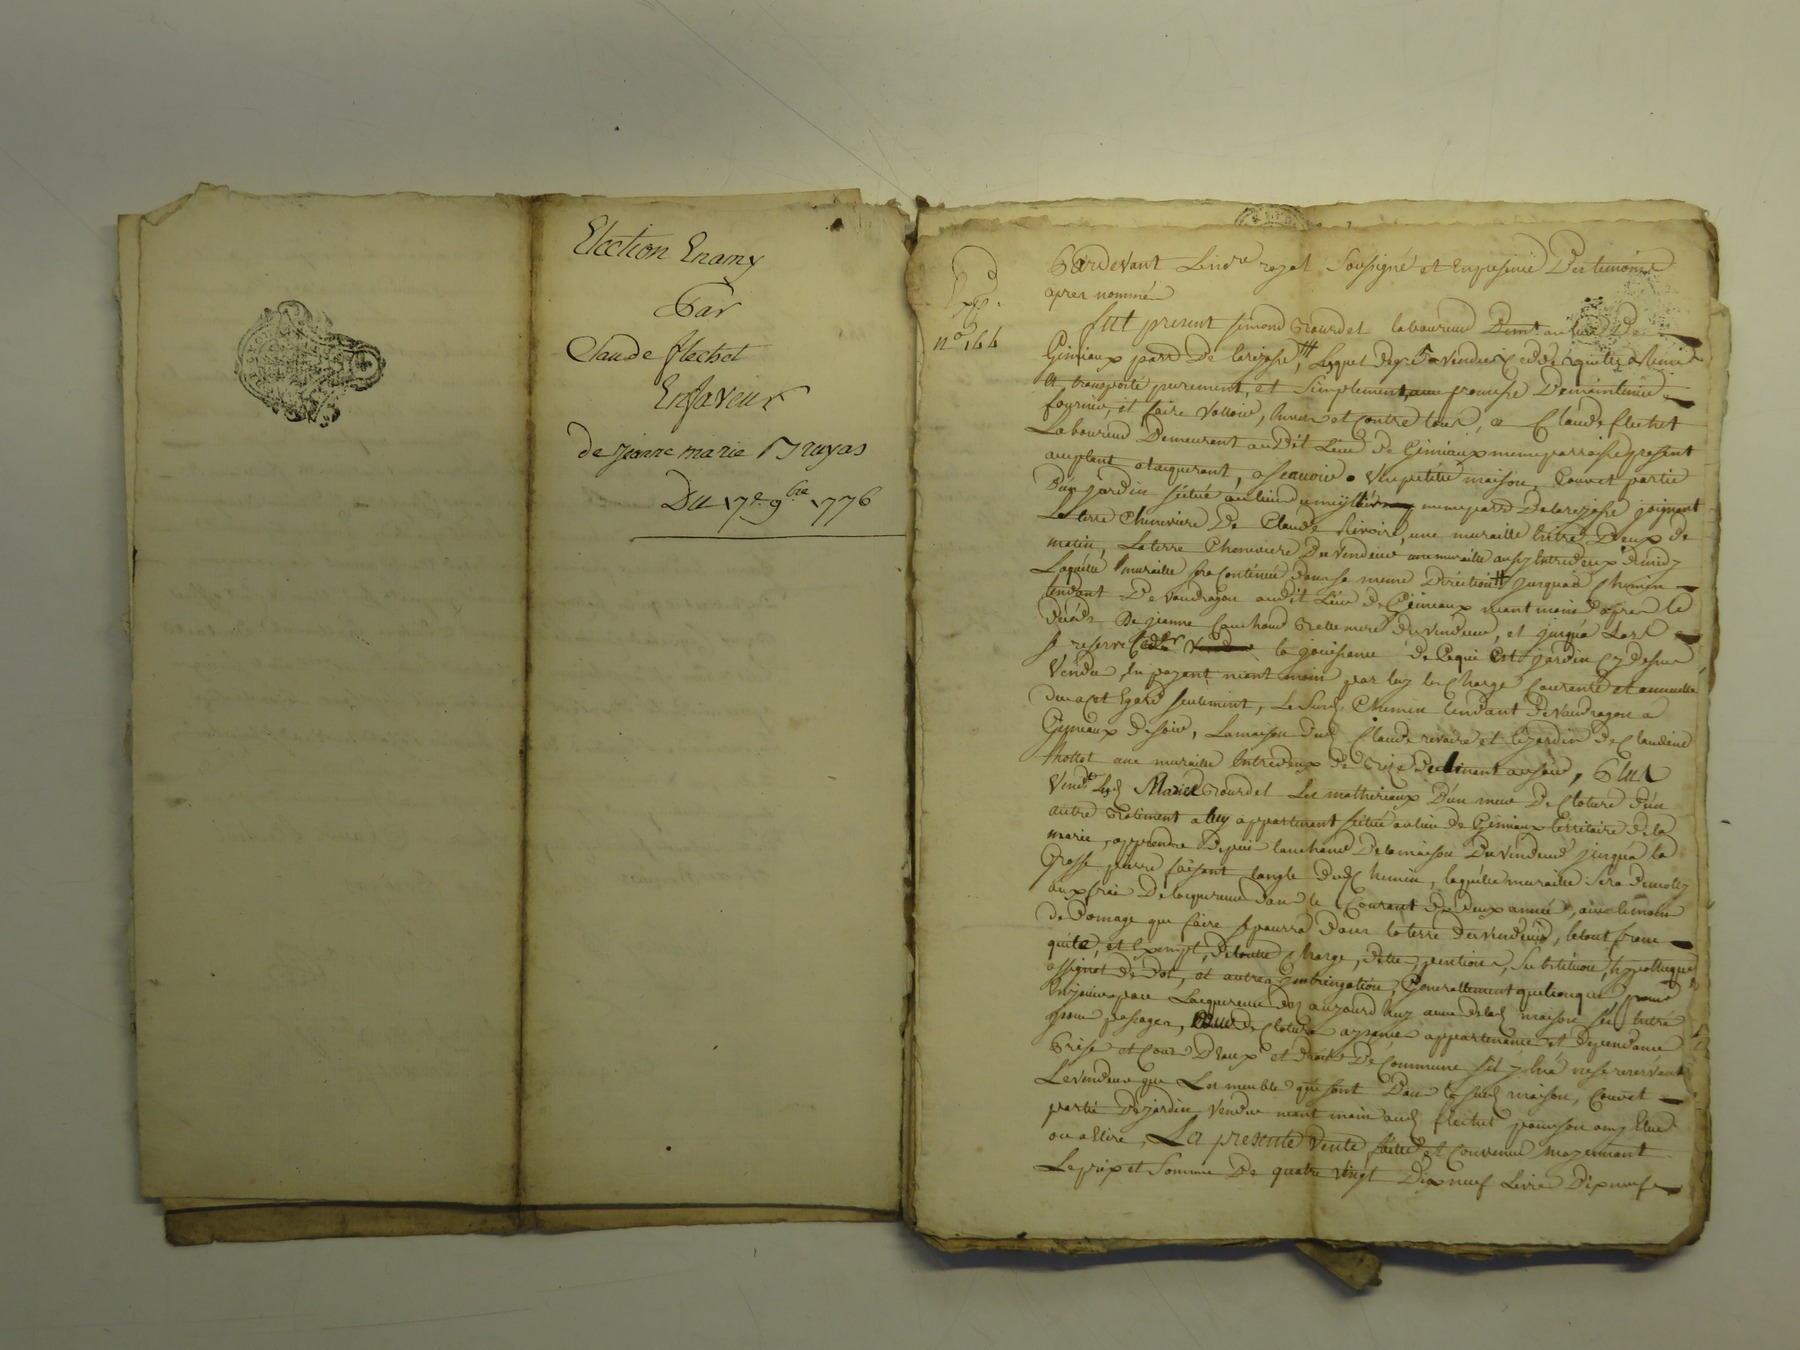 Election Enamy
Par
Claude flechet
Enfaveur
de jeanne marie Bruyas
Du 17e 9bre 1776
Exp.
n° 144
Pardevant Le nore royal Soussigné et Enpresence Des temoins
apres nommés
fut present simond Gourdet laboureur Demt au lieu De
Gimiaux parr De larejasse, Lequel degré a vendu Cedé quitté Remis
et transporté purement, et Simplement avec promesse De maintenir
fournir, et faire valloir, Envers et Contre tous, a Claude flechet
Laboureur Demeurant audit Lieu de Gimiaux meme parroisse present
aceptant etacquerant, a scavoir. Une petitte maison, Couvert partie
D'un jardin scitué au lieu meme parr Delarejasse joignant
La terre Cheneviere De Claude Rivoire, une muraille Entre Deux de
matin, La terre Cheneviere Du vendeur une muraille aussy Entredeux Demidy
Laquelle muraille sera Continuée dans sa meme Direction jusquau Chemin
tendant De vaudragon audit Lieu De Gimiaux neant moins apres le
déces De jeanne mere du vendeur, et jusqua Lors
se reserve Led. vendr la jouissance de Cequi Est jardin Cy dessus
vendu, En payant neant moins par luy les Charges Courantes et annuelles
dura cet Egard seulement, Le Susd. Chemin tendant De vaudragon a
Gimiaux De soir, La maison dud. Claude rivoire et le jardin de Claudine
une muraille Entredeux de Bize declinant ausoir, Plus
Vend Led. Gourdet Les matheriaux D'un mur De Cloture d'un
autre Batiment a luy appartenant scitué au lieu de Gimiaux territoire de la
marie, apprendre Depuis Delamaison Du vendeur jusqua la
Grosse pierre faisant langle dud. Chemin, laquelle muraille sera Demolly
aux frais De lacquereur dans le Courant De deux années, avec le moins
de Domage que faire se pourra dans la terre du vendeur, le tout franc
quitte, et Exempt, De toutte Charge, Dette, pention, Substitution, hypotheque
assignat de Dot, et autres Generallement quelconque pour
jouir Lacquereur des aujourdhuy avec delad. maison ses Entrées
passages, Cloture appartenance et Dependance
Prise et Cour D'Eaux et droit De Commune sil y En a ne se reservant
Levendeur que Les meubles qui sont Dans la susd. maison, Couvert
partie De jardin vendu neant moins aud. flechet pour son amy Elue
ou a Elire, La presente vente faitte et Convenue moyennant
Le prix et Somme De quatre vingt Dix neuf Livres Dix neuf